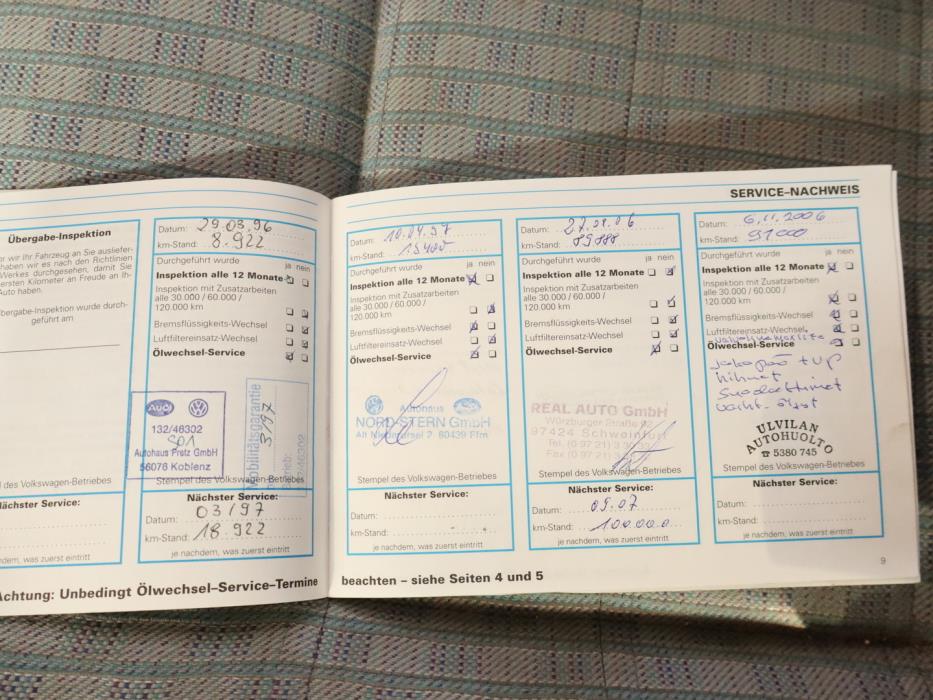 SERVICE–NACHWEIS
Übergabe-Inspektion
wir Ihr Fahrzeug an Sie ausliefer-
haben wir es nach den Richtlinien
Werkes durchgesehen, damit Sie
ersten Kilometer an Freude an Ih-
Auto haben.
bergabe-Inspektion wurde durch-
geführt am
l des Volkswagen-Betriebes
Nächster Service:
dem, was zuerst eintritt
Datum: 29.03.96
km-Stand: 8.922
Durchgeführt wurde ja nein
Inspektion alle 12 Monate
Inspektion mit Zusatzarbeiten
alle 30.000 / 60.000 /
120.000 km
Bremsflüssigkeits-Wechsel
Luftfiltereinsatz-Wechsel
Ölwechsel-Service
Audi
132/46302
Autohaus Pretz GmbH
56076 Koblenz
Mobilitätsgarantie
3/97
Betrieb:
Stempel des Volkswagen-Betriebes
Nächster Service:
Datum: 03/97
km-Stand: 18.922
je nachdem, was zuerst eintritt
Datum: 10.04.97
km-Stand: 15400
Durchgeführt wurde ja nein
Inspektion alle 12 Monate
Inspektion mit Zusatzarbeiten
alle 30.000 / 60.000 /
120.000 km
Bremsflüssigkeits-Wechsel
Luftfiltereinsatz-Wechsel
Ölwechsel-Service
Autohaus
NORD-STERN GmbH
60439 Ffm
Stempel des Volkswagen-Betriebes
Nächster Service:
Datum:
km-Stand:
je nachdem, was zuerst eintritt
Datum:
km-Stand: 89888
Durchgeführt wurde ja nein
Inspektion alle 12 Monate
Inspektion mit Zusatzarbeiten
alle 30.000 / 60.000 /
120.000 km
Bremsflüssigkeits-Wechsel
Luftfiltereinsatz-Wechsel
Ölwechsel-Service
REAL AUTO GmbH
Würzburger Straße
97424 Schweinfurt
Tel. (0 97 21)
Fax (0 97 21)
Stempel des Volkswagen-Betriebes
Nächster Service:
Datum: 09.07
km-Stand: 100000
je nachdem, was zuerst eintritt
Datum: 6.11.2006
km-Stand: 91000
Durchgeführt wurde ja nein
Inspektion alle 12 Monate
Inspektion mit Zusatzarbeiten
alle 30.000 / 60.000 /
120.000 km
Bremsflüssigkeits-Wechsel
Luftfiltereinsatz-Wechsel
Ölwechsel-Service
jakopää + VP
hihnat
Suodattimet
ULVILAN
AUTOHUOLTO
☎ 5380 745
Stempel des Volkswagen-Betriebes
Nächster Service:
Datum:
km-Stand:
je nachdem, was zuerst eintritt
9
Achtung: Unbedingt Ölwechsel–Service–Termine beachten – siehe Seiten 4 und 5